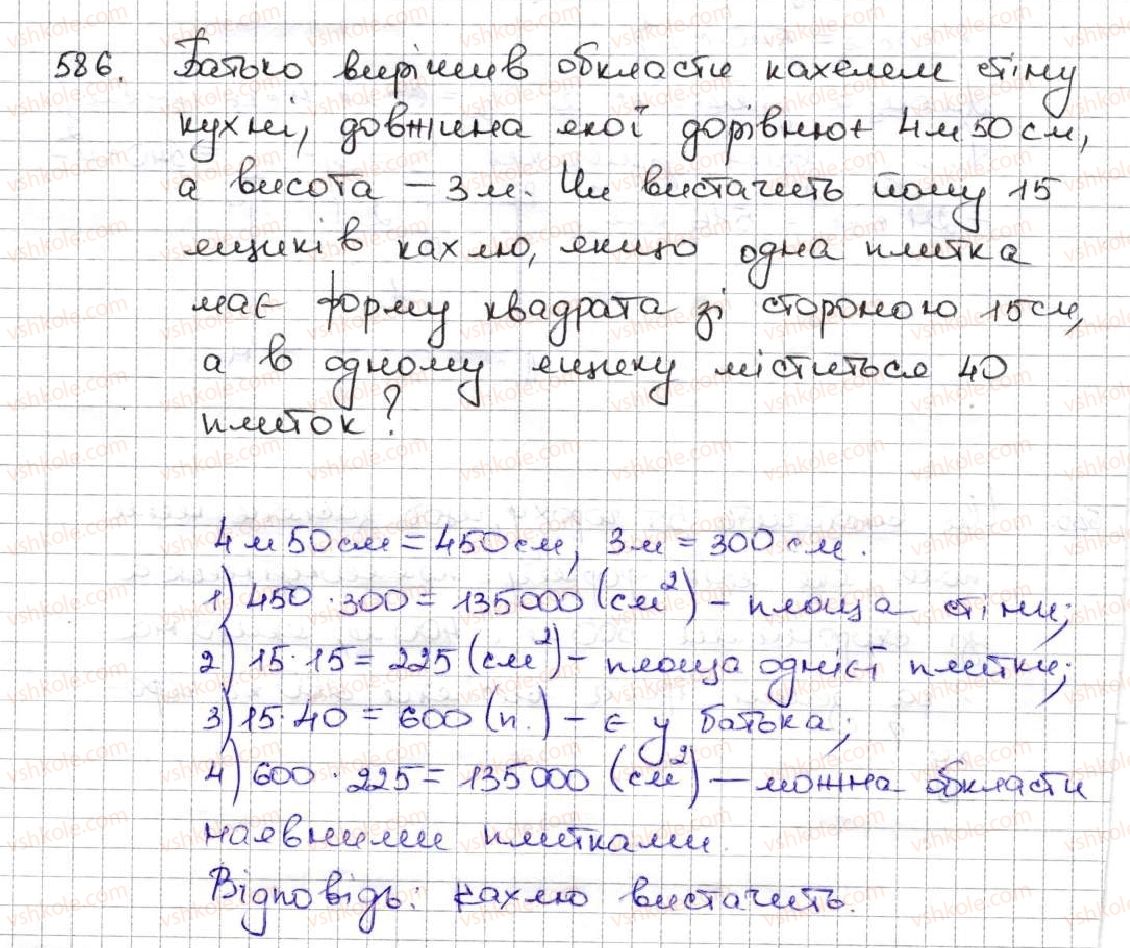 586. Батько вирішив обкласти кахелем стіну
кухні, довжина якої дорівнює 4м 50 см,
а висота – 3 м. Чи вистачить йому 15
ящиків кахлю, якщо одна плитка
має форму квадрата зі стороною 15см,
а в одному ящику міститься 40
плиток?
4 м 50 см = 450 см, 3м = 300 см.
1) 450 · 300 = 135000 (см²) – площа стіни;
2) 15 · 15 = 225 (см²) – площа однієї плитки;
3) 15 · 40 = 600 (п.) – є у батька;
4) 600 · 225 = 135000 (см²) – можна обкласти
наявними плитками.
Відповідь: кахлю вистачить.